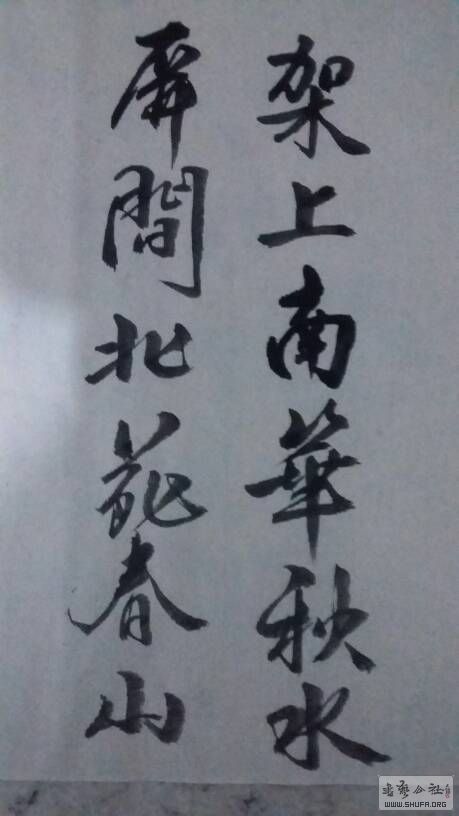 架上南華秋水
屏間北苑春山
书法公社
WWW.SHUFA.ORG